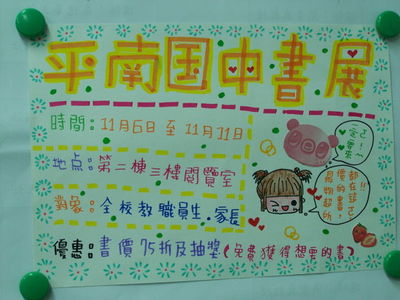 平南国中書展
時間：11月6日 至 11月11日
地点：第二棟三樓閱覽室
對象：全校教職員生．家長
優惠：書價75折及抽獎(免費獲得想要的書)